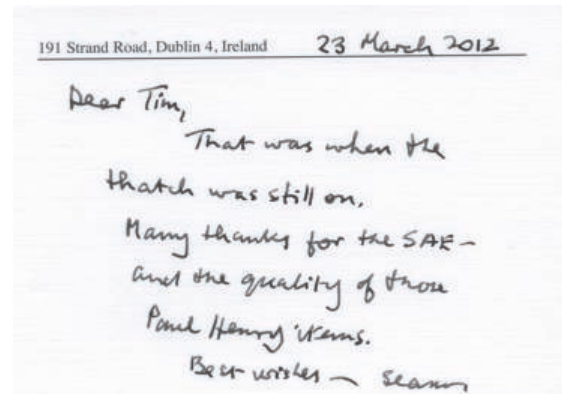 191 Strand Road, Dublin 4, Ireland 23 March 2012
Dear Tim,
That was when the
thatch was still on.
Many thanks for the SAE –
and the quality of those
Paul Henry items.
Best wishes – Seamus